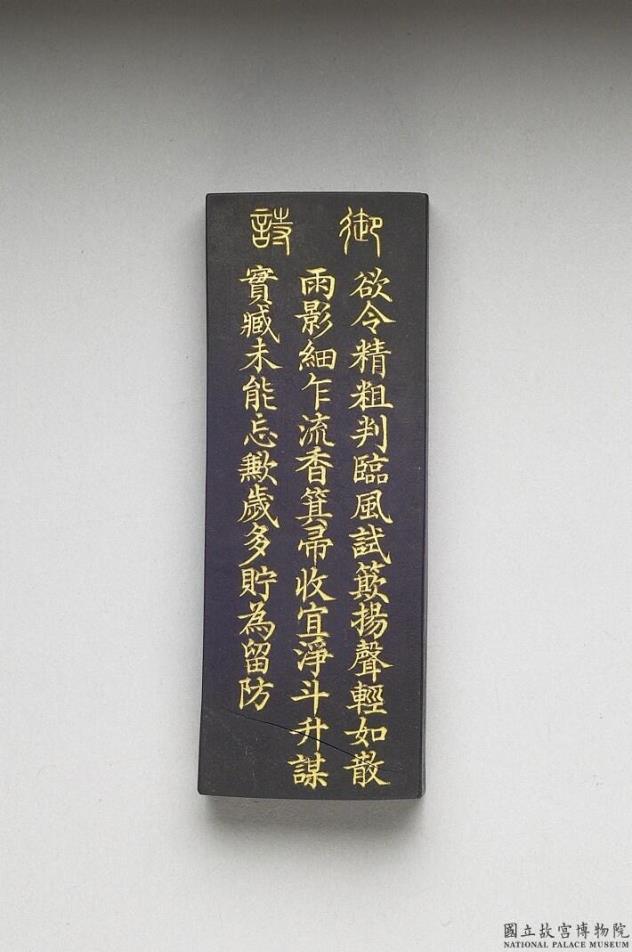 御詩
欲令精粗判臨風試簸揚聲輕如散
雨影細乍流香箕帚收宜淨斗升謀
實臧未能忘歉歲多貯為留防
國立故宮博物院
NATIONAL PALACE MUSEUM